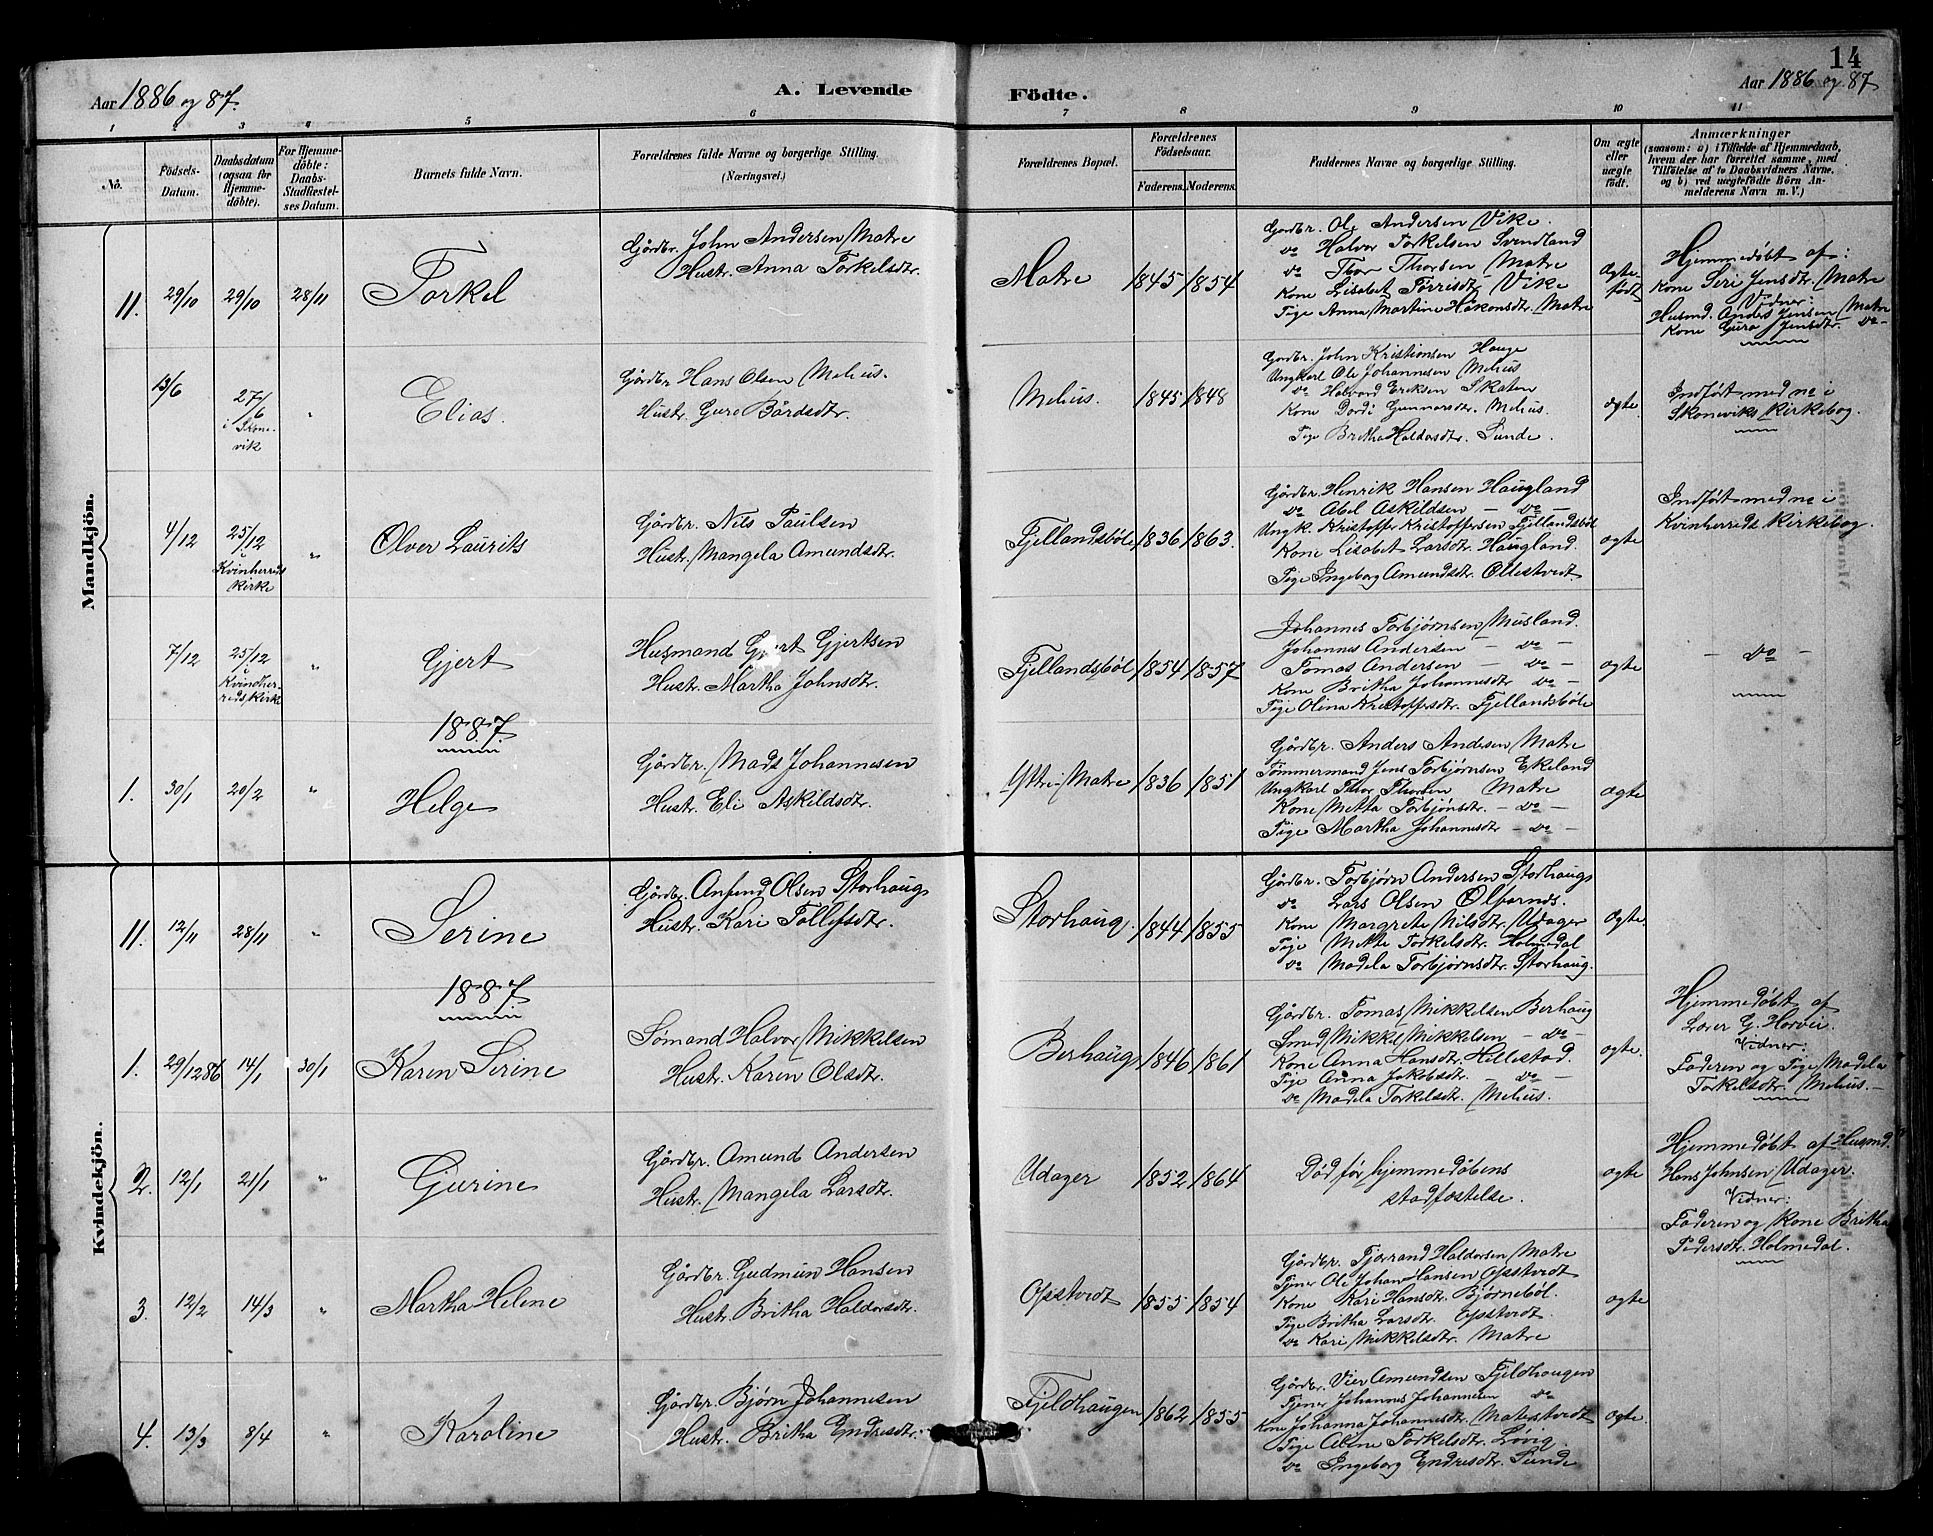 14
Aar 1886 og 87.
A. Levende Födte.
Aar 1886 og 87
1 2 3 4 5 6 7 8 9 10 11
No.
Födsels-Datum.
Daabsdatum (ogsaa for Hjemmedöbte).
For Hjemmedöbte: Daabs-Stadfæstelses Datum.
Barnets fulde Navn.
Forældrenes fulde Navne og borgerlige Stilling. (Næringsvei.)
Forældrenes Bopæl.
Forældrenes Födselsaar.
Faderens. Moderens.
Faddernes Navne og borgerlige Stilling.
Om ægte eller uægte födt.
Anmærkninger
(saasom: a) i Tilfælde af Hjemmedaab, hvem der har forrettet samme, med Tilföielse af to Daabsvidners Navne, og b) ved uægtefödte Börn Anmelderens Navn m. V.)
Mandkjön.
11. 29/10 29/10 28/11 Torkel
Gårdbr. John Andersen Matre
Hustr. Anna Torkelsdtr.
Matre 1845 1854
Gordbr. Ole Andersen Vike.
do Halvor Torkelsen Svendland
do Thor Thorsen Matre
Kone Lisabet Tørrisdtr. Vike
Pige Anna Martine Håkonsdtr. Matre
Ægte-født
Hjemmedøbt af:
Kone Seri Jensdtr. Matre
Vidner:
Husmd. Anders Jensen Matre
Kone Guro Jensdtr. do
13/6 27/6 i Skonevik " Elias.
Gårdbr Hans Olsen Mehus.
Hustr. Guro Bårdsdtr.
Mehus. 1845 1848
Gordbr. John Kristiansen Hauge
Ungkarl Ole Johannesen Mehus
do Halvard Eriksen Skaten
Kone Dordi Gunnarsdtr. Mehus.
Pige Britha Haldorsdtr. Sunde.
ægte
Indført med no i
Skoneviks Kirkebog.
4/12 25/12 i Kvinherreds Kirke " Olver Laurits
Gårdbr. Nils Paulsen
Hustr. Mangela Amundsdtr.
Fjellandsbøle 1836 1863.
Gårdbr. Henrik Hansen Haugland
do Abel Askildsen — do —
Ungk. Kristoffer Kristoffersen Fjellandsbøl
Kone Lisabet Larsdtr. Haugland.
Pige Ingeborg Amundsdtr. Ollestvedt
ægte
Indført med no i
Kvinherreds Kirkebog.
7/12 25/12 i Kvindherreds Kirke " Gjert
Husmand Gjert Gjertsen
Hustr. Martha Johnsdtr.
Fjellandsbøl 1854 1857
Johannes Torbjørnsen Musland.
Johannes Andersen — do —
Tomas Andersen — do —
Kone Britha Johannesdtr do —
Pige Olina Kristoffersdtr. Fjellandsbøle
ægte
— do —
1887.
1. 30/1 20/2 " Helge
Gårdbr. Mads Johannesen
Hustr. Eli Askildsdtr.
Yttre-Matre 1836 1851
Gårdbr. Anders Andersen Matre
Tømmermand Jens Torbjørnsen Ekeland
Ungkarl Thor Thorsen Matre
Kone Metta Torbjønsdtr. — do —
Pige Martha Johannesdtr — do —
ægte
Kvindekjön.
11. 12/11 28/11 " Serine
Gårdbr. Anfend Olsen Storhaug
Hustr. Kari Tollefsdtr.
Storhaug. 1844 1855
Gårdbr. Torbjørn Andersen Storhaug
do Lars Olsen Ølfarnes.
Kone Margrete Nilsdtr. Udager
Pige Mette Torkelsdtr. Holmedal
do Madela Torbjørnsdtr. Storhaug.
ægte.
1887
1. 29/12 86 14/1 30/1 Karen Serine
Sømand Halvor Mikkelsen
Hustr. Karen Olsdtr.
Berhaug 1846 1861
Gårdbr. Tomas Mikkelsen Berhaug
Smed Mikkel Mikkelsen — do —
Kone Anna Hansdtr. Hellestad.
Pige Anna Jakobsdtr. — do —
do Madela Torkelsdtr. Mehus.
ægte.
Hjemmedøbt af
Lærer G. Horvei.
Vidner:
Faderen og Pige Madela
Torkelsdtr. Mehus.
2. 12/1 21/1 " Gurine
Gårdbr. Amund Andersen
Hustr. Mangela Larsdtr.
Udager 1852 1864
Død før hjemmedåbens
stadfæstelse.
ægte
Hjemmedøbt af Husmd.
Hans Johnsen Udager.
Vidner:
Faderen og Kone Britha
Pedersdtr. Holmedal.
3. 12/2 14/3 " Martha Helene
Gårdbr. Gudmun Hansen
Hustr. Britha Haldorsdtr.
Opstvedt 1855 1854
Gårdbr. Tjerand Haldorsen Matre
Tjener Ole Johan Hansen Opstvedt
Kone Kari Hansdtr. Bjørnebøl.
Pige Britha Larsdtr. Opstvedt
do Kari Mikkelsdtr. Matre
ægte
4. 13/3 8/4 " Karoline
Gårdbr. Bjørn Johannesen
Hustr. Britha Endresdtr.
Fjeldhaugen 1862 1855
Gårdbr. Vier Amundsen Fjeldhaugen
Tjener Johannes Johannesen do
Kone Johanna Johannesdtr. Matrestvedt
Pige Alene Torkelsdtr. Løvig
do Ingeborg Endresdtr. Sunde
ægte